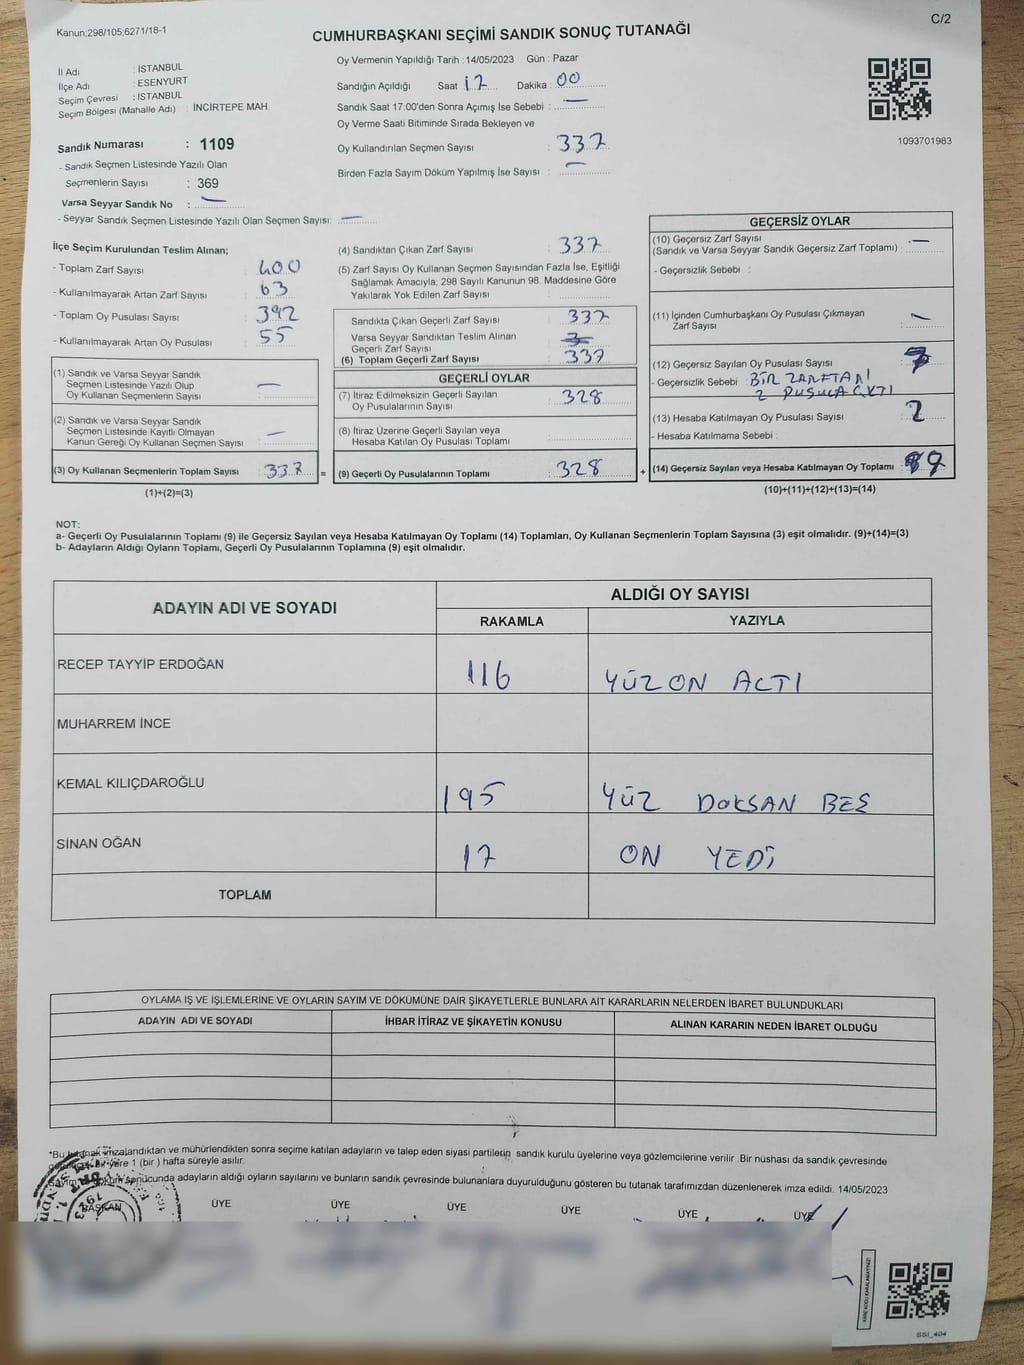 Kanun;298/105;6271/18-1
C/2
CUMHURBAŞKANI SEÇİMİ SANDIK SONUÇ TUTANAĞI
İl Adı : İSTANBUL
İlçe Adı : ESENYURT
Seçim Çevresi : İSTANBUL
Seçim Bölgesi (Mahalle Adı) : İNCİRTEPE MAH.
Oy Vermenin Yapıldığı Tarih : 14/05/2023 Gün : Pazar
Sandığın Açıldığı Saat 17 Dakika : 00
Sandık Saat 17:00'den Sonra Açımış İse Sebebi : —
Oy Verme Saati Bitiminde Sırada Bekleyen ve
Oy Kullandırılan Seçmen Sayısı : 337
Birden Fazla Sayım Döküm Yapılmış İse Sayısı : —
1093701983
Sandık Numarası : 1109
- Sandık Seçmen Listesinde Yazılı Olan
Seçmenlerin Sayısı : 369
Varsa Seyyar Sandık No : —
- Seyyar Sandık Seçmen Listesinde Yazılı Olan Seçmen Sayısı: —
İlçe Seçim Kurulundan Teslim Alınan;
- Toplam Zarf Sayısı : 400
- Kullanılmayarak Artan Zarf Sayısı : 63
- Toplam Oy Pusulası Sayısı : 392
- Kullanılmayarak Artan Oy Pusulası : 55
(1) Sandık ve Varsa Seyyar Sandık
Seçmen Listesinde Yazılı Olup
Oy Kullanan Seçmenlerin Sayısı : —
(2) Sandık ve Varsa Seyyar Sandık
Seçmen Listesinde Kayıtlı Olmayan
Kanun Gereği Oy Kullanan Seçmen Sayısı : —
(3) Oy Kullanan Seçmenlerin Toplam Sayısı : 337 =
(1)+(2)=(3)
(4) Sandıktan Çıkan Zarf Sayısı : 337
(5) Zarf Sayısı Oy Kullanan Seçmen Sayısından Fazla İse, Eşitliği
Sağlamak Amacıyla; 298 Sayılı Kanunun 98. Maddesine Göre
Yakılarak Yok Edilen Zarf Sayısı :
Sandıkta Çıkan Geçerli Zarf Sayısı : 337
Varsa Seyyar Sandıktan Teslim Alınan
Geçerli Zarf Sayısı :
(6) Toplam Geçerli Zarf Sayısı : 337
GEÇERLİ OYLAR
(7) İtiraz Edilmeksizin Geçerli Sayılan
Oy Pusulalarının Sayısı : 328
(8) İtiraz Üzerine Geçerli Sayılan veya
Hesaba Katılan Oy Pusulası Toplamı :
(9) Geçerli Oy Pusulalarının Toplamı : 328 +
GEÇERSİZ OYLAR
(10) Geçersiz Zarf Sayısı : —
(Sandık ve Varsa Seyyar Sandık Geçersiz Zarf Toplamı)
- Geçersizlik Sebebi :
(11) İçinden Cumhurbaşkanı Oy Pusulası Çıkmayan
Zarf Sayısı : —
(12) Geçersiz Sayılan Oy Pusulası Sayısı : 7
- Geçersizlik Sebebi : BİR ZARFTAN
2 PUSULA ÇIKTI
(13) Hesaba Katılmayan Oy Pusulası Sayısı : 2
- Hesaba Katılmama Sebebi :
(14) Geçersiz Sayılan veya Hesaba Katılmayan Oy Toplamı : 9
(10)+(11)+(12)+(13)=(14)
NOT:
a- Geçerli Oy Pusulalarının Toplamı (9) ile Geçersiz Sayılan veya Hesaba Katılmayan Oy Toplamı (14) Toplamları, Oy Kullanan Seçmenlerin Toplam Sayısına (3) eşit olmalıdır. (9)+(14)=(3)
b- Adayların Aldığı Oyların Toplamı, Geçerli Oy Pusulalarının Toplamına (9) eşit olmalıdır.
ADAYIN ADI VE SOYADI ALDIĞI OY SAYISI
RAKAMLA YAZIYLA
RECEP TAYYİP ERDOĞAN 116 YÜZ ON ALTI
MUHARREM İNCE
KEMAL KILIÇDAROĞLU 195 YÜZ DOKSAN BEŞ
SİNAN OĞAN 17 ON YEDİ
TOPLAM
OYLAMA İŞ VE İŞLEMLERİNE VE OYLARIN SAYIM VE DÖKÜMÜNE DAİR ŞİKAYETLERLE BUNLARA AİT KARARLARIN NELERDEN İBARET BULUNDUKLARI
ADAYIN ADI VE SOYADI İHBAR İTİRAZ VE ŞİKAYETİN KONUSU ALINAN KARARIN NEDEN İBARET OLDUĞU
*Bu tutanak imzalandıktan ve mühürlendikten sonra seçime katılan adayların ve talep eden siyasi partilerin sandık kurulu üyelerine veya gözlemcilerine verilir .Bir nüshası da sandık çevresinde
bir yere 1 (bir ) hafta süreyle asılır.
sonucunda adayların aldığı oyların sayılarını ve bunların sandık çevresinde bulunanlara duyurulduğunu gösteren bu tutanak tarafımızdan düzenlenerek imza edildi. 14/05/2023
BAŞKAN ÜYE ÜYE ÜYE ÜYE ÜYE ÜYE
KARE KODU KARALAMAYINIZ!
SSI_404